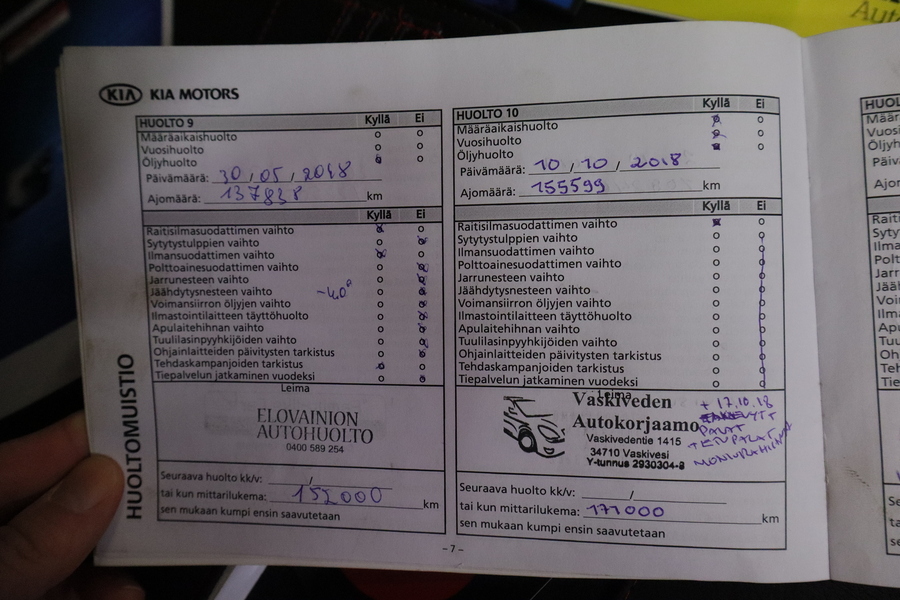 KIA KIA MOTORS
HUOLTO 9 Kyllä Ei
Määräaikaishuolto
Vuosihuolto
Öljyhuolto
Päivämäärä: 30 / 05 / 2018
Ajomäärä: 137838 km
Kyllä Ei
Raitisilmasuodattimen vaihto
Sytytystulppien vaihto
Ilmansuodattimen vaihto
Polttoainesuodattimen vaihto
Jarrunesteen vaihto
Jäähdytysnesteen vaihto -40°
Voimansiirron öljyjen vaihto
Ilmastointilaitteen täyttöhuolto
Apulaitehihnan vaihto
Tuulilasinpyyhkijöiden vaihto
Ohjainlaitteiden päivitysten tarkistus
Tehdaskampanjoiden tarkistus
Tiepalvelun jatkaminen vuodeksi
Leima
ELOVAINION
AUTOHUOLTO
0400 589 254
Seuraava huolto kk/v: /
tai kun mittarilukema: 152000 km
sen mukaan kumpi ensin saavutetaan
HUOLTO 10 Kyllä Ei
Määräaikaishuolto
Vuosihuolto
Öljyhuolto
Päivämäärä: 10 / 10 / 2018
Ajomäärä: 155599 km
Kyllä Ei
Raitisilmasuodattimen vaihto
Sytytystulppien vaihto
Ilmansuodattimen vaihto
Polttoainesuodattimen vaihto
Jarrunesteen vaihto
Jäähdytysnesteen vaihto
Voimansiirron öljyjen vaihto
Ilmastointilaitteen täyttöhuolto
Apulaitehihnan vaihto
Tuulilasinpyyhkijöiden vaihto
Ohjainlaitteiden päivitysten tarkistus
Tehdaskampanjoiden tarkistus
Tiepalvelun jatkaminen vuodeksi
Leima
Vaskiveden
Autokorjaamo
Vaskivedentie 1415
34710 Vaskivesi
Y-tunnus 2930304-8
+ 17.10.18
PALAT
Seuraava huolto kk/v: /
tai kun mittarilukema: 171000 km
sen mukaan kumpi ensin saavutetaan
HUOLTOMUISTIO
- 7 -